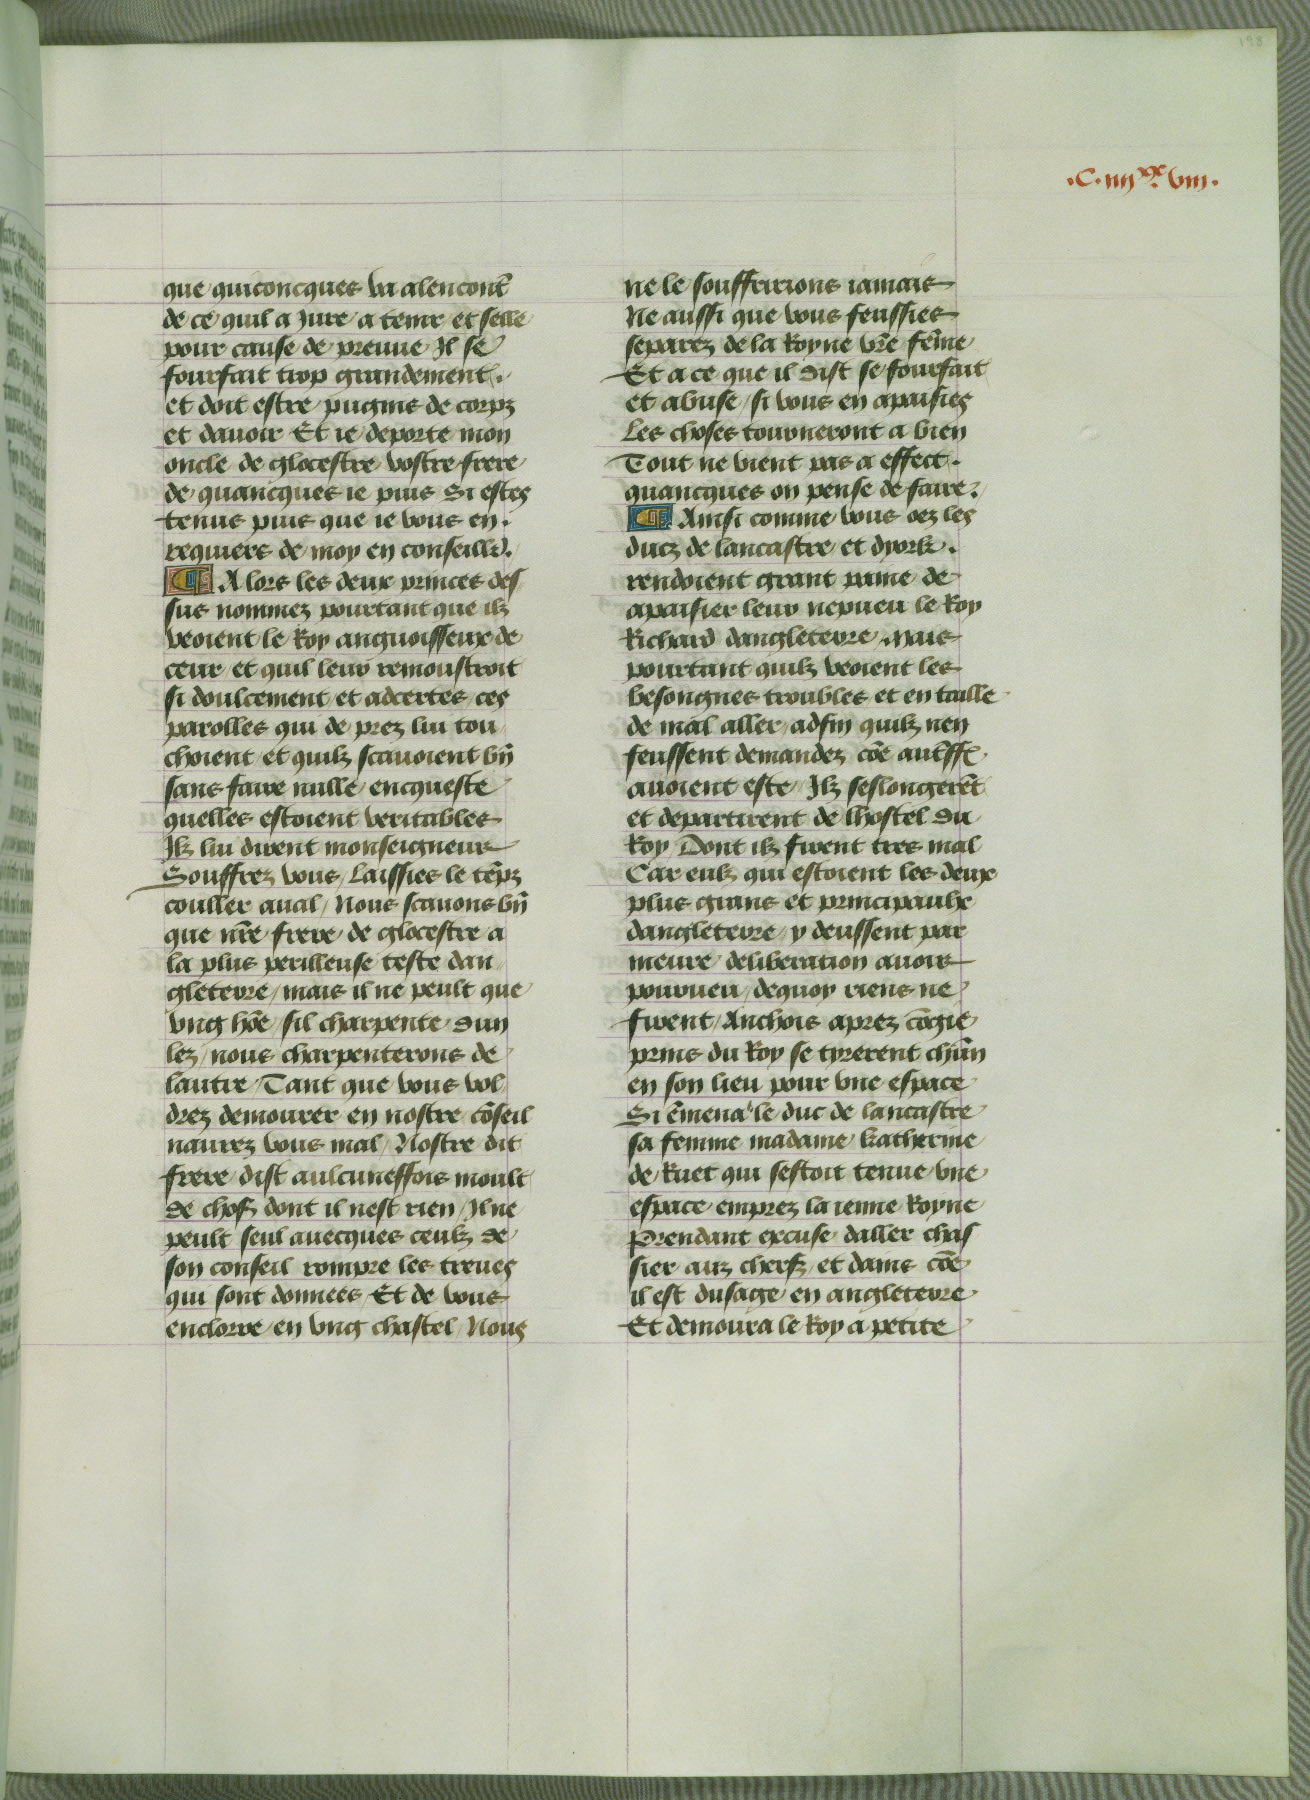 198
.C.iiijxx.viij.
que quiconcques va alencont̃
de ce quil a jure a tenir / et selle
pour cause de preuue Il se
fourfait trop grandement .
et doit estre / pugnis de corpz
et dauoir Et ie deporte mon
oncle de glocestre vostre frere
de quancques ie puis Si estes
tenus puis que ie vous en .
requiers de moy en conseillr̃.
¶ A lors les deux princes des
sus nommez pourtant que ilz
veoient le Roy anguoisseux de
ceur / et quil leur remoustroit
si doulcement / et adcertes / ces
parolles qui de prez lui tou
choient / et quilz scauoient bñ
sans faire nulle / encqueste
quelles estoient veritables
Ilz lui dirent monseigneur
Souffrez vous / Laissies le tẽpz
couller aual / Nous scauons bñ
que nr̃e frere / de glocestre a
la plus perilleuse teste dan
gleterre / mais il ne peult que
vng hõe / sil charpente dun
lez / nous charpenterons de
lautre / Tant que vous vol
drez demourer en nostre cõseil
naurez vous mal / Nostre dit
frere / dist aulcuneffois moult
de choses dont il nest rien / Il ne
peult seul auecques ceulz de
son conseil rompre les treues
qui sont donnees / Et de vous
enclorre / en vng chastel / Nous
ne le souffririons iamais
Ne aussi que vous feussies
separez de la Royne vr̃e fẽme
Et a ce que il dist se fourfait
et abuse / si vous en apaisies
Les choses tourneront a bien
Tout ne vient pas a effect .
quancques on pense de faire.
¶ Ainsi comme vous oez les
ducz de lancastre et dyork .
rendoient grant paine de
apaisier leur nepueu le Roy
Richard dangleterre . Mais
pourtant quilz veoient les
besongnes troubles et en taille
de mal aller / adfin quilz nen
feussent demandez cõe autẽff̃
auoient este / Ilz seslongerẽt
et departirent de lhostel du
Roy / Dont ilz firent tres mal
Car eulz qui estoient les deux
plus grans et principaulx
dangleterre / y deussent par
meure deliberation auoir
pourueu / dequoy riens ne
firent / Anchois aprez cõgie
prins du Roy se tyrerent chũn
en son lieu pour vne espace
Si ẽmena le duc de lancastre
sa femme madame katherine
de Ruet qui sestoit tenue vne
espace / emprez la ienne Royne
Prendant excuse daller chas
sier auz cherfz / et dains cõe
il est dusage / en angleterre
Et demoura le Roy a petite